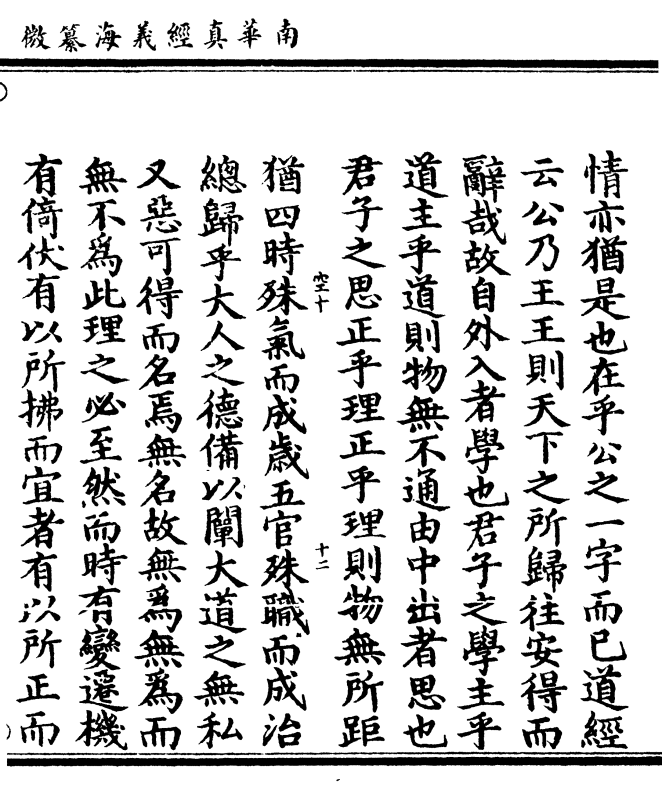 南華真經義海纂微
情亦猶是也在乎公之一字而已道經
云公乃王王則天下之所歸往安得而
辭哉故自外入者學也君子之學主乎
道主乎道則物無不通由中出者思也
君子之思正乎理正乎理則物無所距
空十
十二
猶四時殊氣而成歲五官殊職而成治
總歸乎大人之德備以闡大道之無私
又惡可得而名焉無名故無為無為而
無不為此理之必至然而時有變遷機
有倚伏有以所拂而宜者有以所正而